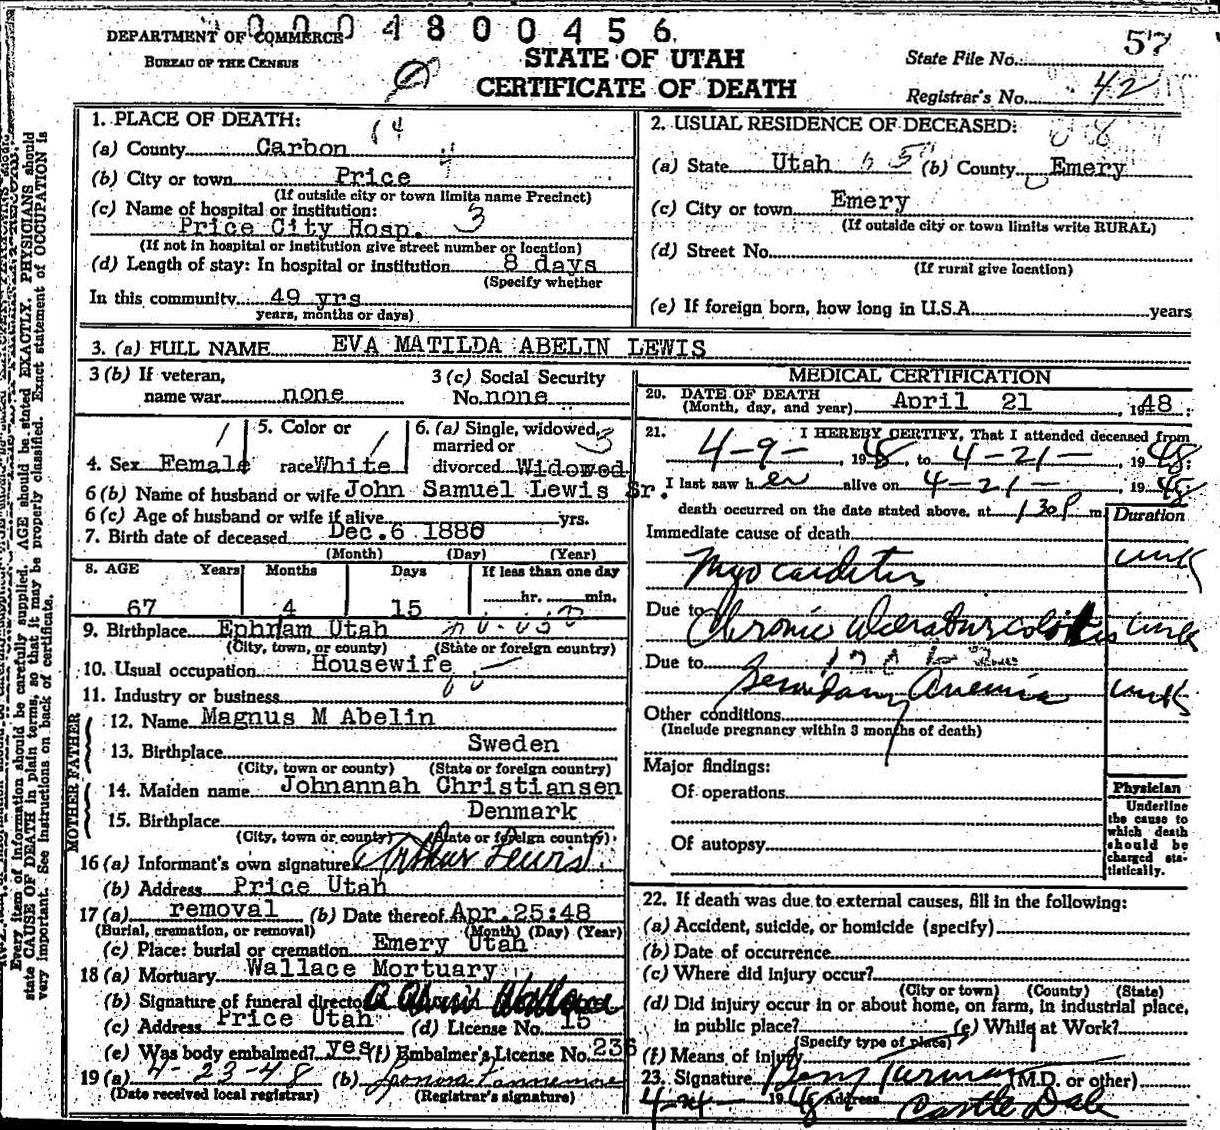 0004800456
DEPARTMENT OF COMMERCE
BUREAU OF THE CENSUS
STATE OF UTAH
CERTIFICATE OF DEATH
State File No. 57
Registrar's No. 42
1. PLACE OF DEATH:
(a) County Carbon
(b) City or town Price
(If outside city or town limits name Precinct)
(c) Name of hospital or institution:
Price City Hosp. 3
(If not in hospital or institution give street number or location)
(d) Length of stay: In hospital or institution 8 days
(Specify whether
In this community 49 yrs
years, months or days)
2. USUAL RESIDENCE OF DECEASED:
(a) State Utah (b) County Emery
(c) City or town Emery
(If outside city or town limits write RURAL)
(d) Street No.
(If rural give location)
(e) If foreign born, how long in U.S.A. years
3. (a) FULL NAME EVA MATILDA ABELIN LEWIS
3 (b) If veteran,
name war none
3 (c) Social Security
No. none
4. Sex Female
5. Color or
race White
6. (a) Single, widowed,
married or
divorced Widowed
6 (b) Name of husband or wife John Samuel Lewis Sr.
6 (c) Age of husband or wife if alive yrs.
7. Birth date of deceased Dec. 6 1880
(Month) (Day) (Year)
8. AGE Years Months Days If less than one day
hr. min.
67 4 15
9. Birthplace Ephriam Utah
(City, town, or county) (State or foreign country)
10. Usual occupation Housewife
11. Industry or business
FATHER
12. Name Magnus M Abelin
13. Birthplace Sweden
(City, town or county) (State or foreign country)
MOTHER
14. Maiden name Johnannah Christiansen
15. Birthplace Denmark
(City, town or county) (State or foreign country)
16 (a) Informant's own signature Arthur Lewis
(b) Address Price Utah
17 (a) removal (b) Date thereof Apr. 25:48
(Burial, cremation, or removal) (Month) (Day) (Year)
(c) Place: burial or cremation Emery Utah
18 (a) Mortuary Wallace Mortuary
(b) Signature of funeral director Wallace
(c) Address Price Utah (d) License No. 15
(e) Was body embalmed? yes (f) Embalmer's License No. 236
19 (a) 4-23-48 (b)
(Date received local registrar) (Registrar's signature)
MEDICAL CERTIFICATION
20. DATE OF DEATH
(Month, day, and year) April 21, 1948.
21. I HEREBY CERTIFY, That I attended deceased from
4-9-, 1948, to 4-21-, 1948;
I last saw her alive on 4-21-, 1948
death occurred on the date stated above, at 1 30 P m.
Duration
Immediate cause of death
Myocarditis
Due to
Chronic Ulcerative colitis
Due to
Secondary Anemia
Other conditions
(Include pregnancy within 3 months of death)
Major findings:
Of operations
Of autopsy
Physician
Underline
the cause to
which death
should be
charged sta-
tistically.
22. If death was due to external causes, fill in the following:
(a) Accident, suicide, or homicide (specify)
(b) Date of occurrence
(c) Where did injury occur?
(City or town) (County) (State)
(d) Did injury occur in or about home, on farm, in industrial place,
in public place? (e) While at Work?
(Specify type of place)
(f) Means of injury
23. Signature (M.D. or other)
1948 Address Castle Dale
Every item of information should be carefully supplied. AGE should be stated EXACTLY. PHYSICIANS should
state CAUSE OF DEATH in plain terms, so that it may be properly classified. Exact statement of OCCUPATION is
very important. See instructions on back of certificate.